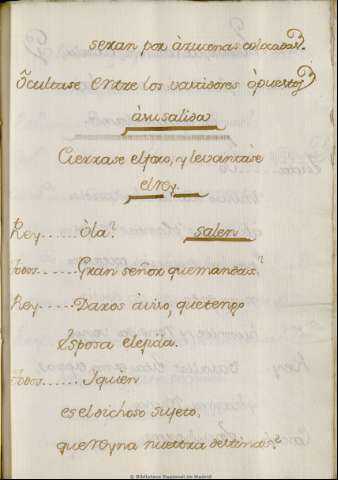 seran por àzucenas colocadas.
Òcultase entre los vastidores òpuestos
àsu salida
Cierrase el foro, y levantase
el rey.
Rey...... Òla? salen
todos..... Gran señor que mandais?
Rey...... Daros àviso, que tengo
Esposa elejida.
todos..... I quien
es el dichoso sujeto,
que Reyna nuestra destinas?
© Biblioteca Nacional de Madrid